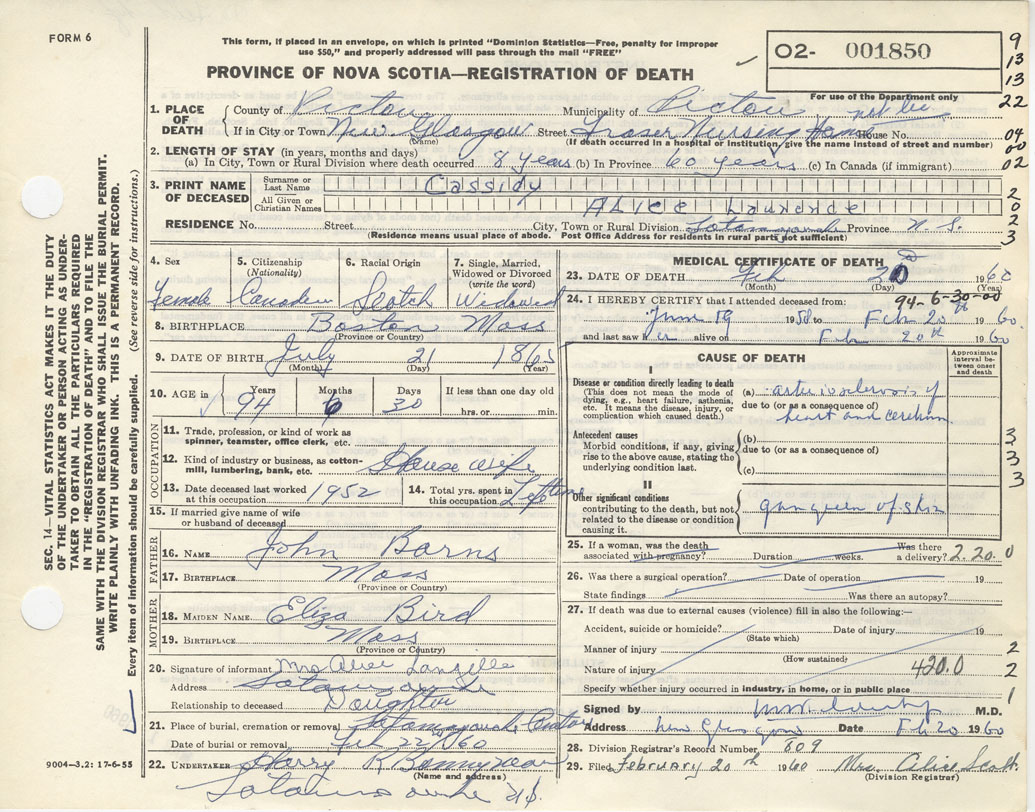 FORM 6
This form, if placed in an envelope, on which is printed "Dominion Statistics—Free, penalty for improper
use $50," and properly addressed will pass through the mail "FREE"
PROVINCE OF NOVA SCOTIA—REGISTRATION OF DEATH
O2- 001850
For use of the Department only
9
13
13
22
04
00
02
2
0
2
3
1. PLACE OF DEATH
County of Pictou Municipality of Pictou
If in City or Town New Glasgow Street Fraser Nursing Home House No.
(Name) (If death occurred in a hospital or institution, give the name instead of street and number)
2. LENGTH OF STAY (in years, months and days)
(a) In City, Town or Rural Division where death occurred 8 years (b) In Province 60 years (c) In Canada (if immigrant)
3. PRINT NAME OF DECEASED
Surname or Last Name Cassidy
All Given or Christian Names Alice Laurence
RESIDENCE No. Street City, Town or Rural Division Province N. S.
(Residence means usual place of abode. Post Office Address for residents in rural parts not sufficient)
SEC. 14—VITAL STATISTICS ACT MAKES IT THE DUTY
OF THE UNDERTAKER OR PERSON ACTING AS UNDER-
TAKER TO OBTAIN ALL THE PARTICULARS REQUIRED
IN THE "REGISTRATION OF DEATH" AND TO FILE THE
SAME WITH THE DIVISION REGISTRAR WHO SHALL ISSUE THE BURIAL PERMIT.
WRITE PLAINLY WITH UNFADING INK. THIS IS A PERMANENT RECORD.
Every item of information should be carefully supplied. (See reverse side for instructions.)
4. Sex 5. Citizenship (Nationality) 6. Racial Origin 7. Single, Married, Widowed or Divorced (write the word)
Female Canadian Scotch Widowed
8. BIRTHPLACE Boston Mass
(Province or Country)
9. DATE OF BIRTH July 21 1865
(Month) (Day) (Year)
10. AGE in Years Months Days If less than one day
94 6 30 hrs. or min.
OCCUPATION
11. Trade, profession, or kind of work as
spinner, teamster, office clerk, etc.
12. Kind of industry or business, as cotton-
mill, lumbering, bank, etc. House wife
13. Date deceased last worked at this occupation 1952 14. Total yrs. spent in this occupation Lifetime
15. If married give name of wife
or husband of deceased
FATHER
16. NAME John Barns
17. BIRTHPLACE Mass
(Province or Country)
MOTHER
18. MAIDEN NAME Eliza Bird
19. BIRTHPLACE Mass
(Province or Country)
20. Signature of informant Mrs Alice Langille
Address
Relationship to deceased Daughter
21. Place of burial, cremation or removal Tatamagouche
Date of burial or removal Feb 22/1960
22. UNDERTAKER Harry R
(Name and address)
N.S.
9004—3.2: 17-6-55
MEDICAL CERTIFICATE OF DEATH
23. DATE OF DEATH Feb 20 1960
(Month) (Day) (Year)
94-6-30-00
24. I HEREBY CERTIFY that I attended deceased from:
June 19 to Feb 20th 1960
and last saw her alive on Feb 20th 1960
CAUSE OF DEATH
Approximate interval between onset and death
I
Disease or condition directly leading to death
(This does not mean the mode of
dying, e.g., heart failure, asthenia,
etc. It means the disease, injury, or
complication which caused death.)
(a) arteriosclerosis of
due to (or as a consequence of)
heart and cerebrum
Antecedent causes
Morbid conditions, if any, giving
rise to the above cause, stating the
underlying condition last.
(b)
due to (or as a consequence of)
(c)
3
3
3
II
Other significant conditions
contributing to the death, but not
related to the disease or condition
causing it.
gangreen of skin
25. If a woman, was the death associated with pregnancy? Duration weeks. Was there a delivery? 2.20. 0
26. Was there a surgical operation? Date of operation 19
State findings Was there an autopsy?
27. If death was due to external causes (violence) fill in also the following:—
Accident, suicide or homicide? Date of injury 19
(State which)
Manner of injury 2
(How sustained)
Nature of injury 420.0 2
Specify whether injury occurred in industry, in home, or in public place 1
Signed by M.D.
Address New Glasgow Date Feb 20 1960
28. Division Registrar's Record Number 609
29. Filed February 20th 1960 Mrs. Alice Scott
(Division Registrar)